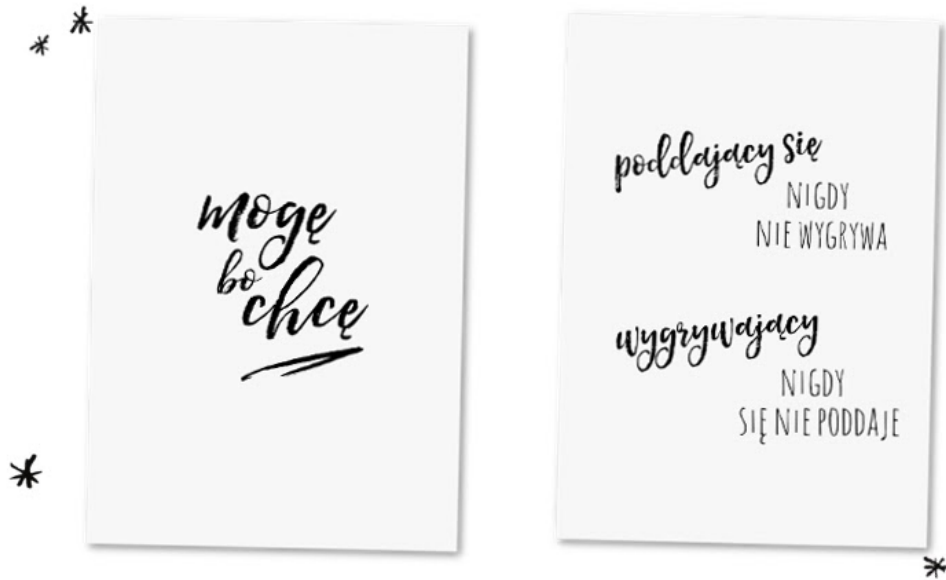 mogę
bo
chcę
poddający się
NIGDY
NIE WYGRYWA
wygrywający
NIGDY
SIĘ NIE PODDAJE